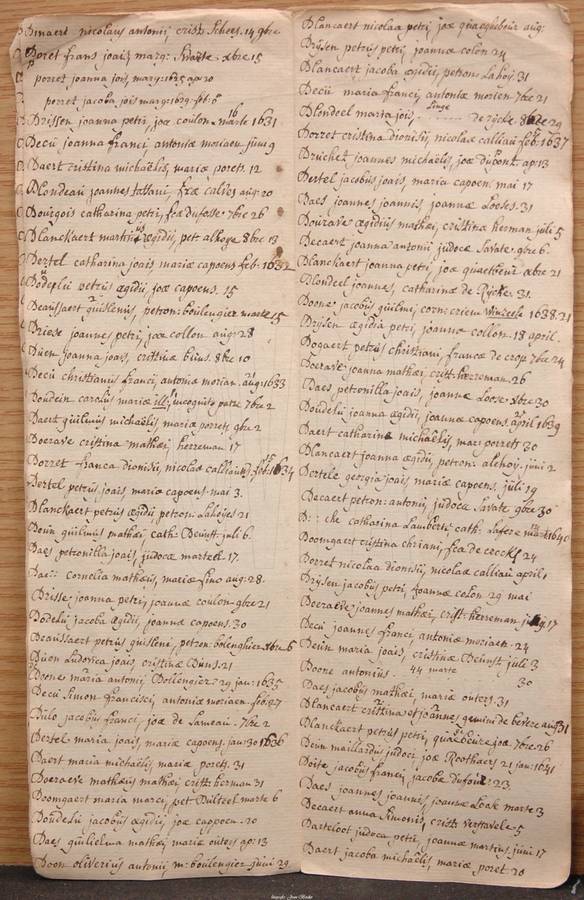 Bmaert nicolaus antonij crist: Schees. 14 9bre
Boret frans joais marg: Swarte. xbre 15
porret joanna jois marg: 1625 ap: 20
porret jacoba jois marg: 1629 feb: 6
Brissen joanna petri, joæ coulon. marte 16 1631
Becu joanna franci, antoniæ moriaen juni 9
Baert cristina michaëlis, mariæ porets. 12
Blondeau joannes fræ aug: 20
Bourgois catharina petri, joæ dufosse. 7bre 26
Blanckaert martinus ægidij, pet. alhoge 8bre 13
Bertel catharina joais mariæ capoens feb. 1632
Bodeplu petrus ægidij, joæ capoens. 15
Beaussaert guislenus, petron: boulengier marte 15
Briese joannes petri, joæ collon aug: 28
Buen joanna joais, cristinæ buns. 8bre 10
Becu christianus franci, antoniæ morian. aug: 1633
Boudein carolus mariæ illi: incognito patre 7bre 2
Baert guilmus michaëlis maria porrets 9bre 2
Boerave cristina mathæi, herreman 17
Borret franca dionisij, nicolaæ calliau feb: 15 1634
Bertel petrus joais, mariæ capoens. mai 3.
Blanckaert petrus ægidij petron: Lahoijes 21
Beun guilmus mathæi, cath: Beunst. juli 6.
Baes petronilla joais, judocæ martel. 17.
cornelia mathæus, mariæ fino aug: 28.
Brisse joanna petri, joannæ coulon. 9bre 21
Bodelu jacoba ægidij, joannæ capoens. 30
Beaussaert petrus guisleni, petron: bolenghier xbre 6
Buon Ludovica joais, cristinæ Buns. 21
Boone maria antonij Bollengier. 29 jan: 1635
Becu Simon Francisci, antoniæ moriaen. feb: 27
Bulo jacobus franci, joæ de Lameau. 7bre 2
Bertel maria joais, mariæ capoens. jan: 30 1636
Baert maria michaëlis mariæ porets. 31
Boerave mathæus mathæi crist: herman 31
Boomgaert maria marci, pet Bultzel marte 6
Boudelu jacobus ægidij, joæ cappoen. 20
Baes guilielma mathæi mariæ outers ap: 13
Boon oliverius antonij m: boulengier juni 29
Blancaert nicolaa petri, joæ quaeghebeur aug:
Brijsen petrus petri, joannæ colon 24
Blancaert jacoba ægidij, petron: Lahoij. 31
Becu maria franci, antoniæ morien 7bre 21
Blondeel maria jois, Linge de rijcke 8bre 29
Borret cristina dionisij, nicolaæ calliau feb: 1637
Bruchet joannes michaëlis, joæ dupont. ap: 13
Bertel jacobus joais, maria capoen. mai 17
Baes joannes joannis, joannæ Loeses. 31
Bourave ægidius mathæi, cristina herman juli 5
Becaert joanna antonij judocæ Savate 9bre 6.
Blanckaert joanna petri, joæ quaetbeur xbre 21
Blondeel joannes, catharinæ de Rijcke. 31.
Boone jacobus guilmi, corn: crieu Winzele 1638. 21
Brijsen ægidia petri, joannæ collon. 18 april.
Bogaert petrus christiani, francæ de crop 7bre 24
Boerave joanna mathæi, crist: herreman. 26
Baes petronilla joais, joannæ Loose. xbre 30
Boudelu joanna ægidij, joannæ capoens april 1639
Baert catharina michaëlij, mary porrets 30
Blancaert joanna ægidij, petron: alehoij: juni 2
Bertele georgia joais, mariæ capoens. juli 19
Becaert petron: antonij, judocæ Savate 9bre 30
B che catharina Lamberti, cath: Lefere 1640
Boomgaert cristina chriani, fræ de 24
Borret nicolaa dionisij, nicolaæ calliau april 1
Brijsen jacobus petri, joannæ colon 29 mai
Boeraeve joannes mathæi, crist: herreman 17
Becu joannes franci antoniæ moriaen. 24
Beun maria joais, cristinæ Beunst juli 3
Boone antonius 44 marte 30
Baes jacobus mathæi mariæ outers. 31
Blancaert cristina et joannes gemini de bevere aug: 31
Blanckaert petrus petri, quæbeure joæ 7bre 26
Beun maillardus judoci, joæ Roothaers 21 jan: 1641
Boite jacobus franci, jacobæ Dufour: 23
Baes joannes joannis, joannæ Loak marte 3
Becaert anna Simonis, crist: vertravele. 5
Barteloot judoca petri, joannæ martins. juni 17
Baert jacoba michaëlis, mariæ poret 20